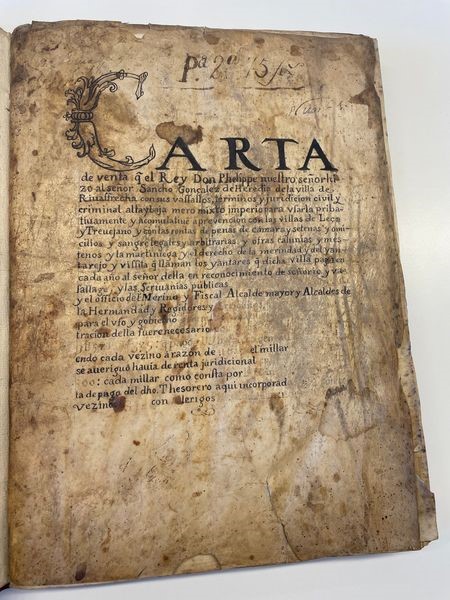 pª. 2ª
CARTA
de venta q̃ el Rey Don Phelippe nuestro señor hi
zo al señor Sancho Gonçalez de Heredia de la villa de
Riuafrecha con sus vassallos, terminos y juridicion ciuil y
criminal alta y baja mero mixto imperio para vsarla priba
tiuamente y acomulatiuê a prevencion con las villas de Leça
y Treuejano y con las rentas de penas de camara y setenas y omi
cillos y sangre legales y arbitrarias y otras calunias y mes
tenos y la martiniega y el derecho de la merindad y del yan
tarejo y vissita q̃ llaman los yantares q̃ dicha villa paga en
cada año al señor della en reconocimiento de señorio y va
sallage y las Scriuanias publicas
y el officio de Merino y Fiscal Alcalde mayor y Alcaldes de
la Hermandad y Regidores y
para el vso y gobierno
tracion della fuere necesario
endo cada vezino a razon de el millar
se aueriguó hauia de renta juridicional
cada millar como consta por
la de pago del dho. Thesorero aqui incorporad
vezino con clerigos